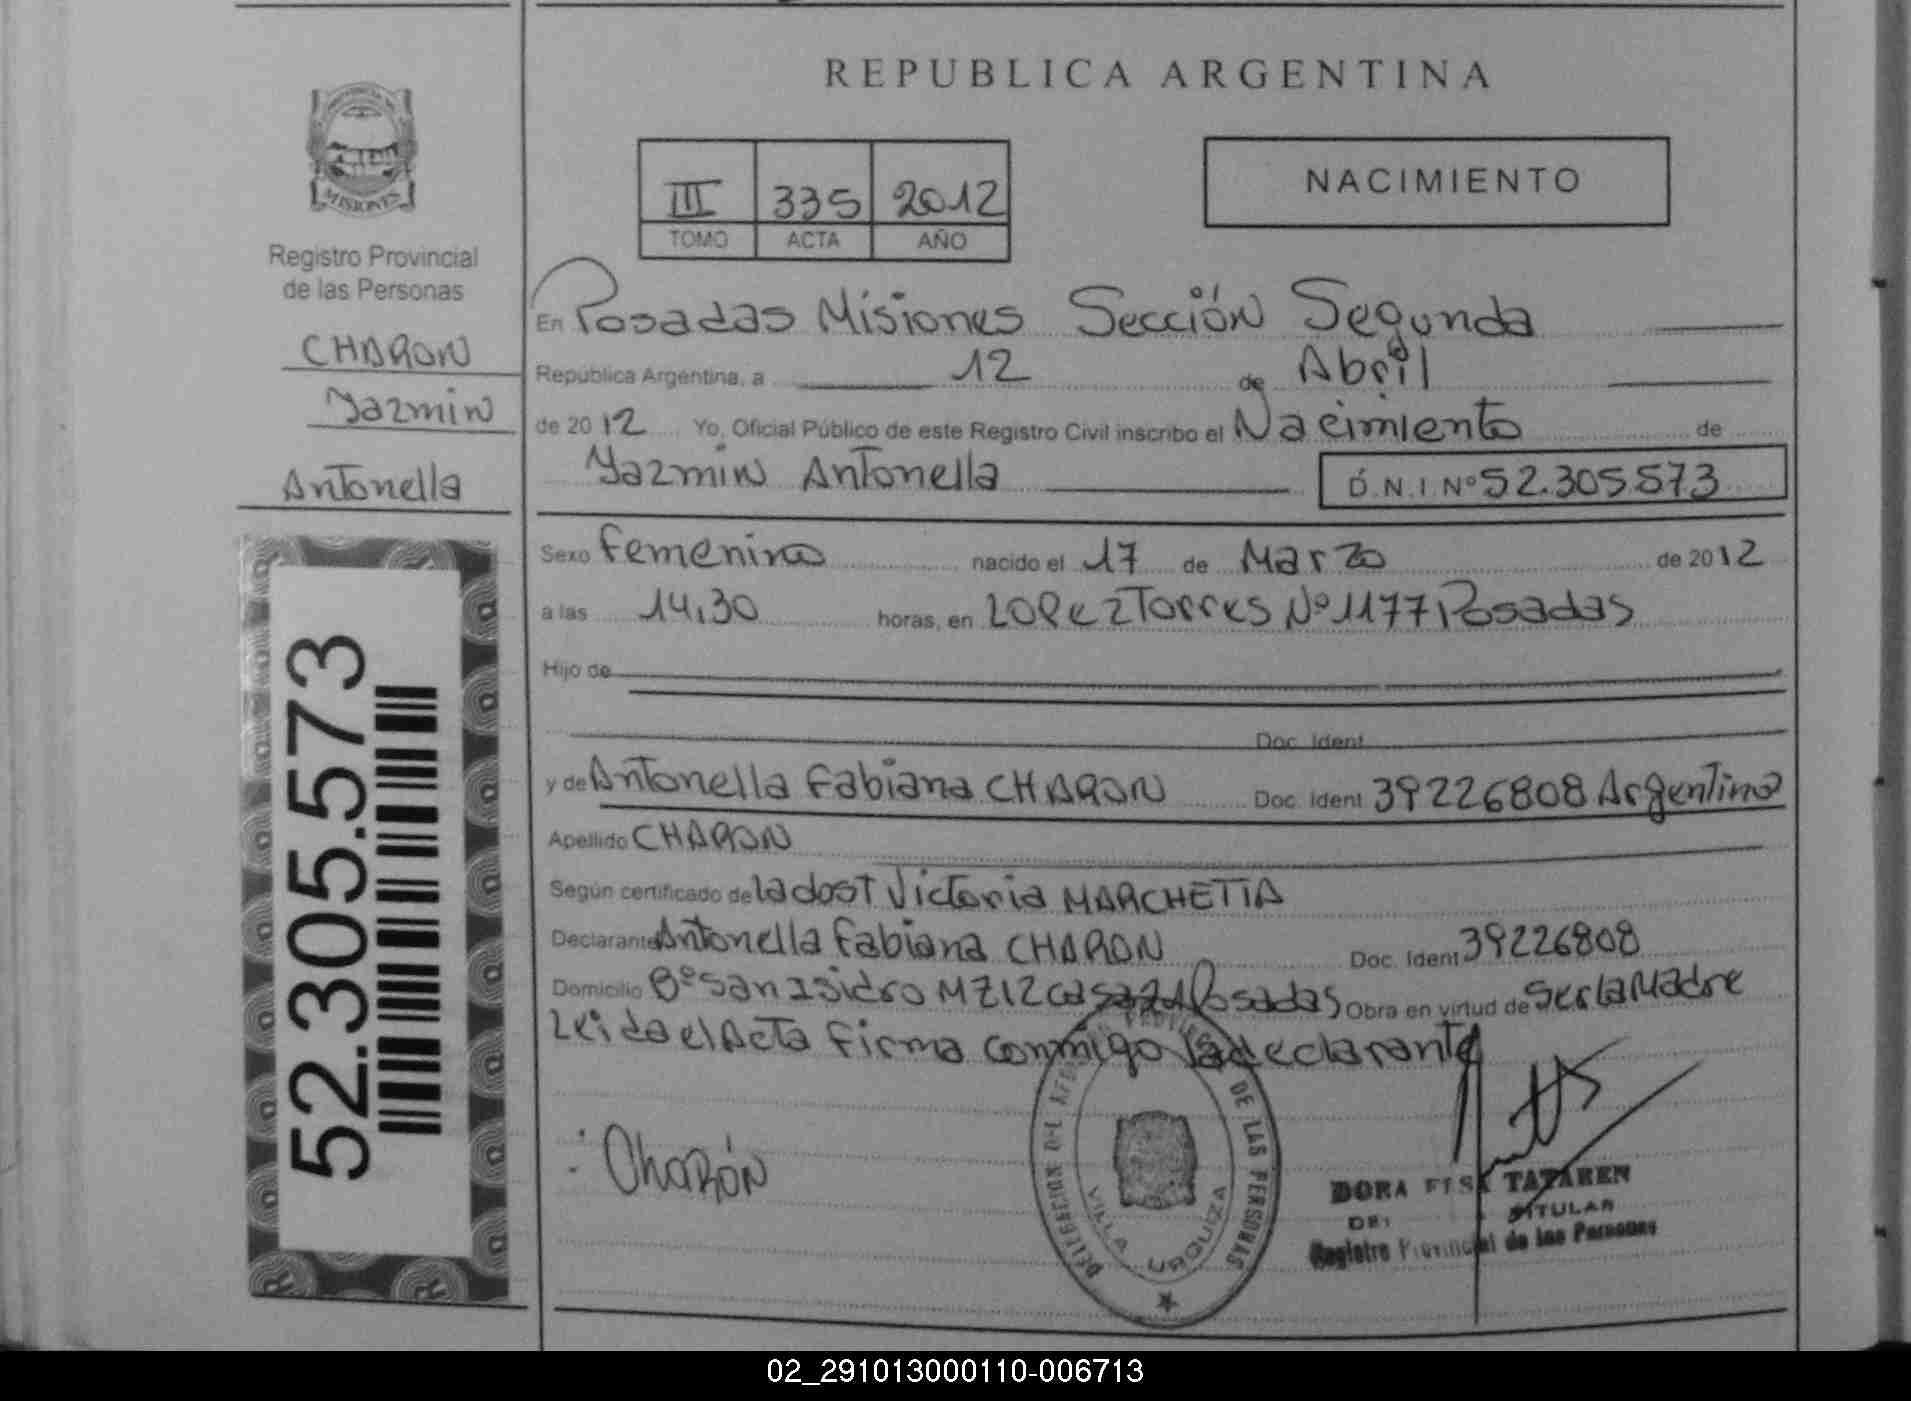 REPUBLICA ARGENTINA
MISIONES
Registro Provincial
de las Personas
CHARON
Yazmin
Antonella
52.305.573
III 335 2012
TOMO ACTA AÑO
NACIMIENTO
En Posadas Misiones Sección Segunda
República Argentina, a 12 de Abril
de 2012 Yo, Oficial Público de este Registro Civil inscribo el Nacimiento de
Yazmin Antonella D.N.I. Nº 52.305.573
Sexo Femenino nacido el 17 de Marzo de 2012
a las 14,30 horas, en Lopez Torres Nº 1177 Posadas
Hijo de
Doc. Ident
y de Antonella Fabiana CHARON Doc. Ident 39226808 Argentina
Apellido CHARON
Según certificado de la dost Victoria MARCHETTA
Declarante Antonella Fabiana CHARON Doc. Ident 39226808
Domicilio Bº San Isidro MZ12 casa Posadas Obra en virtud de Ser la Madre
Leida el Acta Firma conmigo la declarante
Charón
DE LAS PERSONAS
VILLA URQUIZA
DORA TATAREN
TITULAR
Registro Provincial de las Personas
02_291013000110-006713